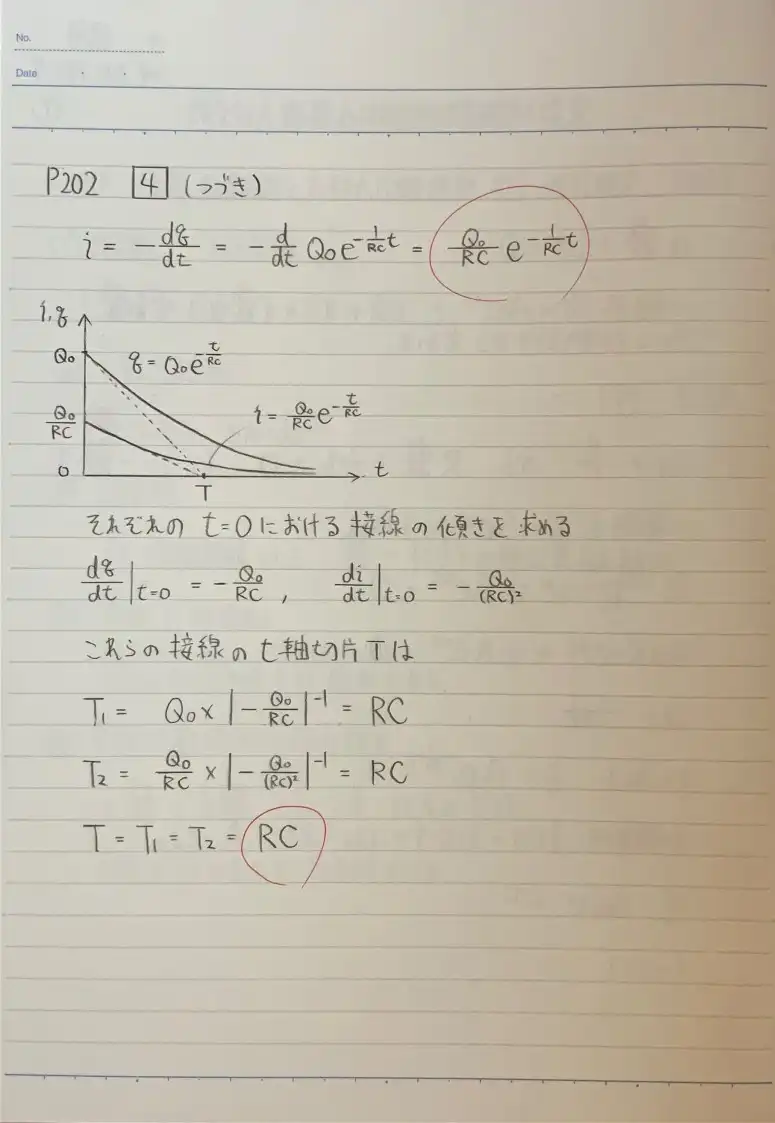 No.
Date
P202 [4] (つづき)
i = -dq/dt = -d/dt Q₀e^{-1/RC t} = Q₀/RC e^{-1/RC t}
i, q
Q₀
q = Q₀e^{-t/RC}
Q₀/RC
i = Q₀/RC e^{-t/RC}
0
t
T
それぞれの t=0における接線の傾きを求める
dq/dt|t=0 = -Q₀/RC , di/dt|t=0 = -Q₀/(RC)²
これらの接線のt軸切片Tは
T₁ = Q₀×|-Q₀/RC|⁻¹ = RC
T₂ = Q₀/RC×|-Q₀/(RC)²|⁻¹ = RC
T = T₁ = T₂ = RC